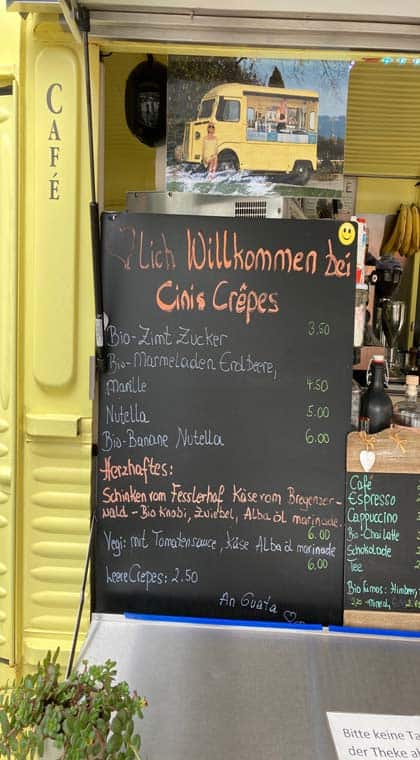 CAFÉ
♡lich Willkommen bei
Cinis Crêpes
Bio-Zimt Zucker 3.50
Bio-Marmeladen Erdbeere,
Marille 4.50
Nutella 5.00
Bio-Banane Nutella 6.00
Herzhaftes:
Schinken vom Fesslerhof Käse vom Bregenzer-
wald - Bio Knobi, Zwiebel, Alba öl marinade.
6.00
Vegi: mit Tomatensauce, Käse Alba öl marinade
6.00
Leere Crepes: 2.50
An Guata ♡
Café
Espresso
Cappuccino
Bio-Chai Latte
Schokolade
Tee
Bio
Bitte keine
der Theke